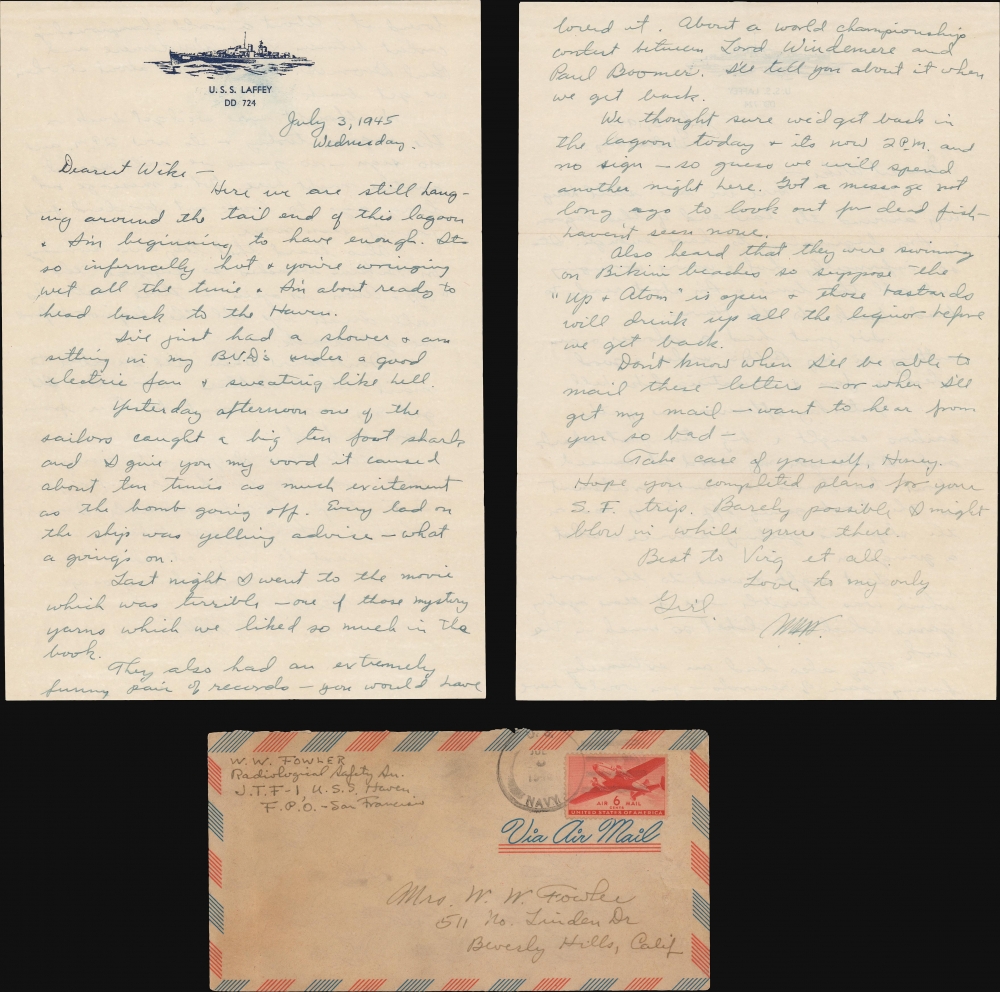 U.S.S. LAFFEY
DD 724
July 3, 1945
Wednesday.
Dearest Wike —
Here we are still hang-
ing around the tail end of this lagoon
& I'm beginning to have enough. Its
so infernally hot & you're wringing
wet all the time & I'm about ready to
head back to the Haven.
I've just had a shower & am
sitting in my B.V.D's under a good
electric fan & sweating like hell.
Yesterday afternoon one of the
sailors caught a big ten foot shark
and I give you my word it caused
about ten times as much excitement
as the bomb going off. Every lad on
the ship was yelling advice — what
a going's on.
Last night I went to the movie
which was terrible — one of those mystery
yarns which we liked so much in the
book.
They also had an extremely
funny pair of records — you would have
loved it. About a world championship
contest between Lord Windemere and
Paul Boomer. I'll tell you about it when
we get back.
We thought sure we'd get back in
the lagoon today & its now 2 P.M. and
no sign — so guess we will spend
another night here. Got a message not
long ago to look out for dead fish —
haven't seen none.
Also heard that they were swimming
on Bikini beaches so suppose the
"Up & Atom" is open & those bastards
will drink up all the liquor before
we get back.
Don't know when I'll be able to
mail these letters — or when I'll
get my mail — want to hear from
you so bad —
Take care of yourself, Honey.
Hope you completed plans for your
S.F. trip. Barely possible I might
blow in while you're there.
Best to Virg et all.
Love to my only
Girl.
W. W. FOWLER
Radiological Safety Su.
J.T.F-1 U.S.S. Haven
F.P.O. - San Francisco
NAVY
AIR 6 MAIL
CENTS
UNITED STATES OF AMERICA
Via Air Mail
Mrs. W. W. Fowler
511 No. Linden Dr
Beverly Hills, Calif